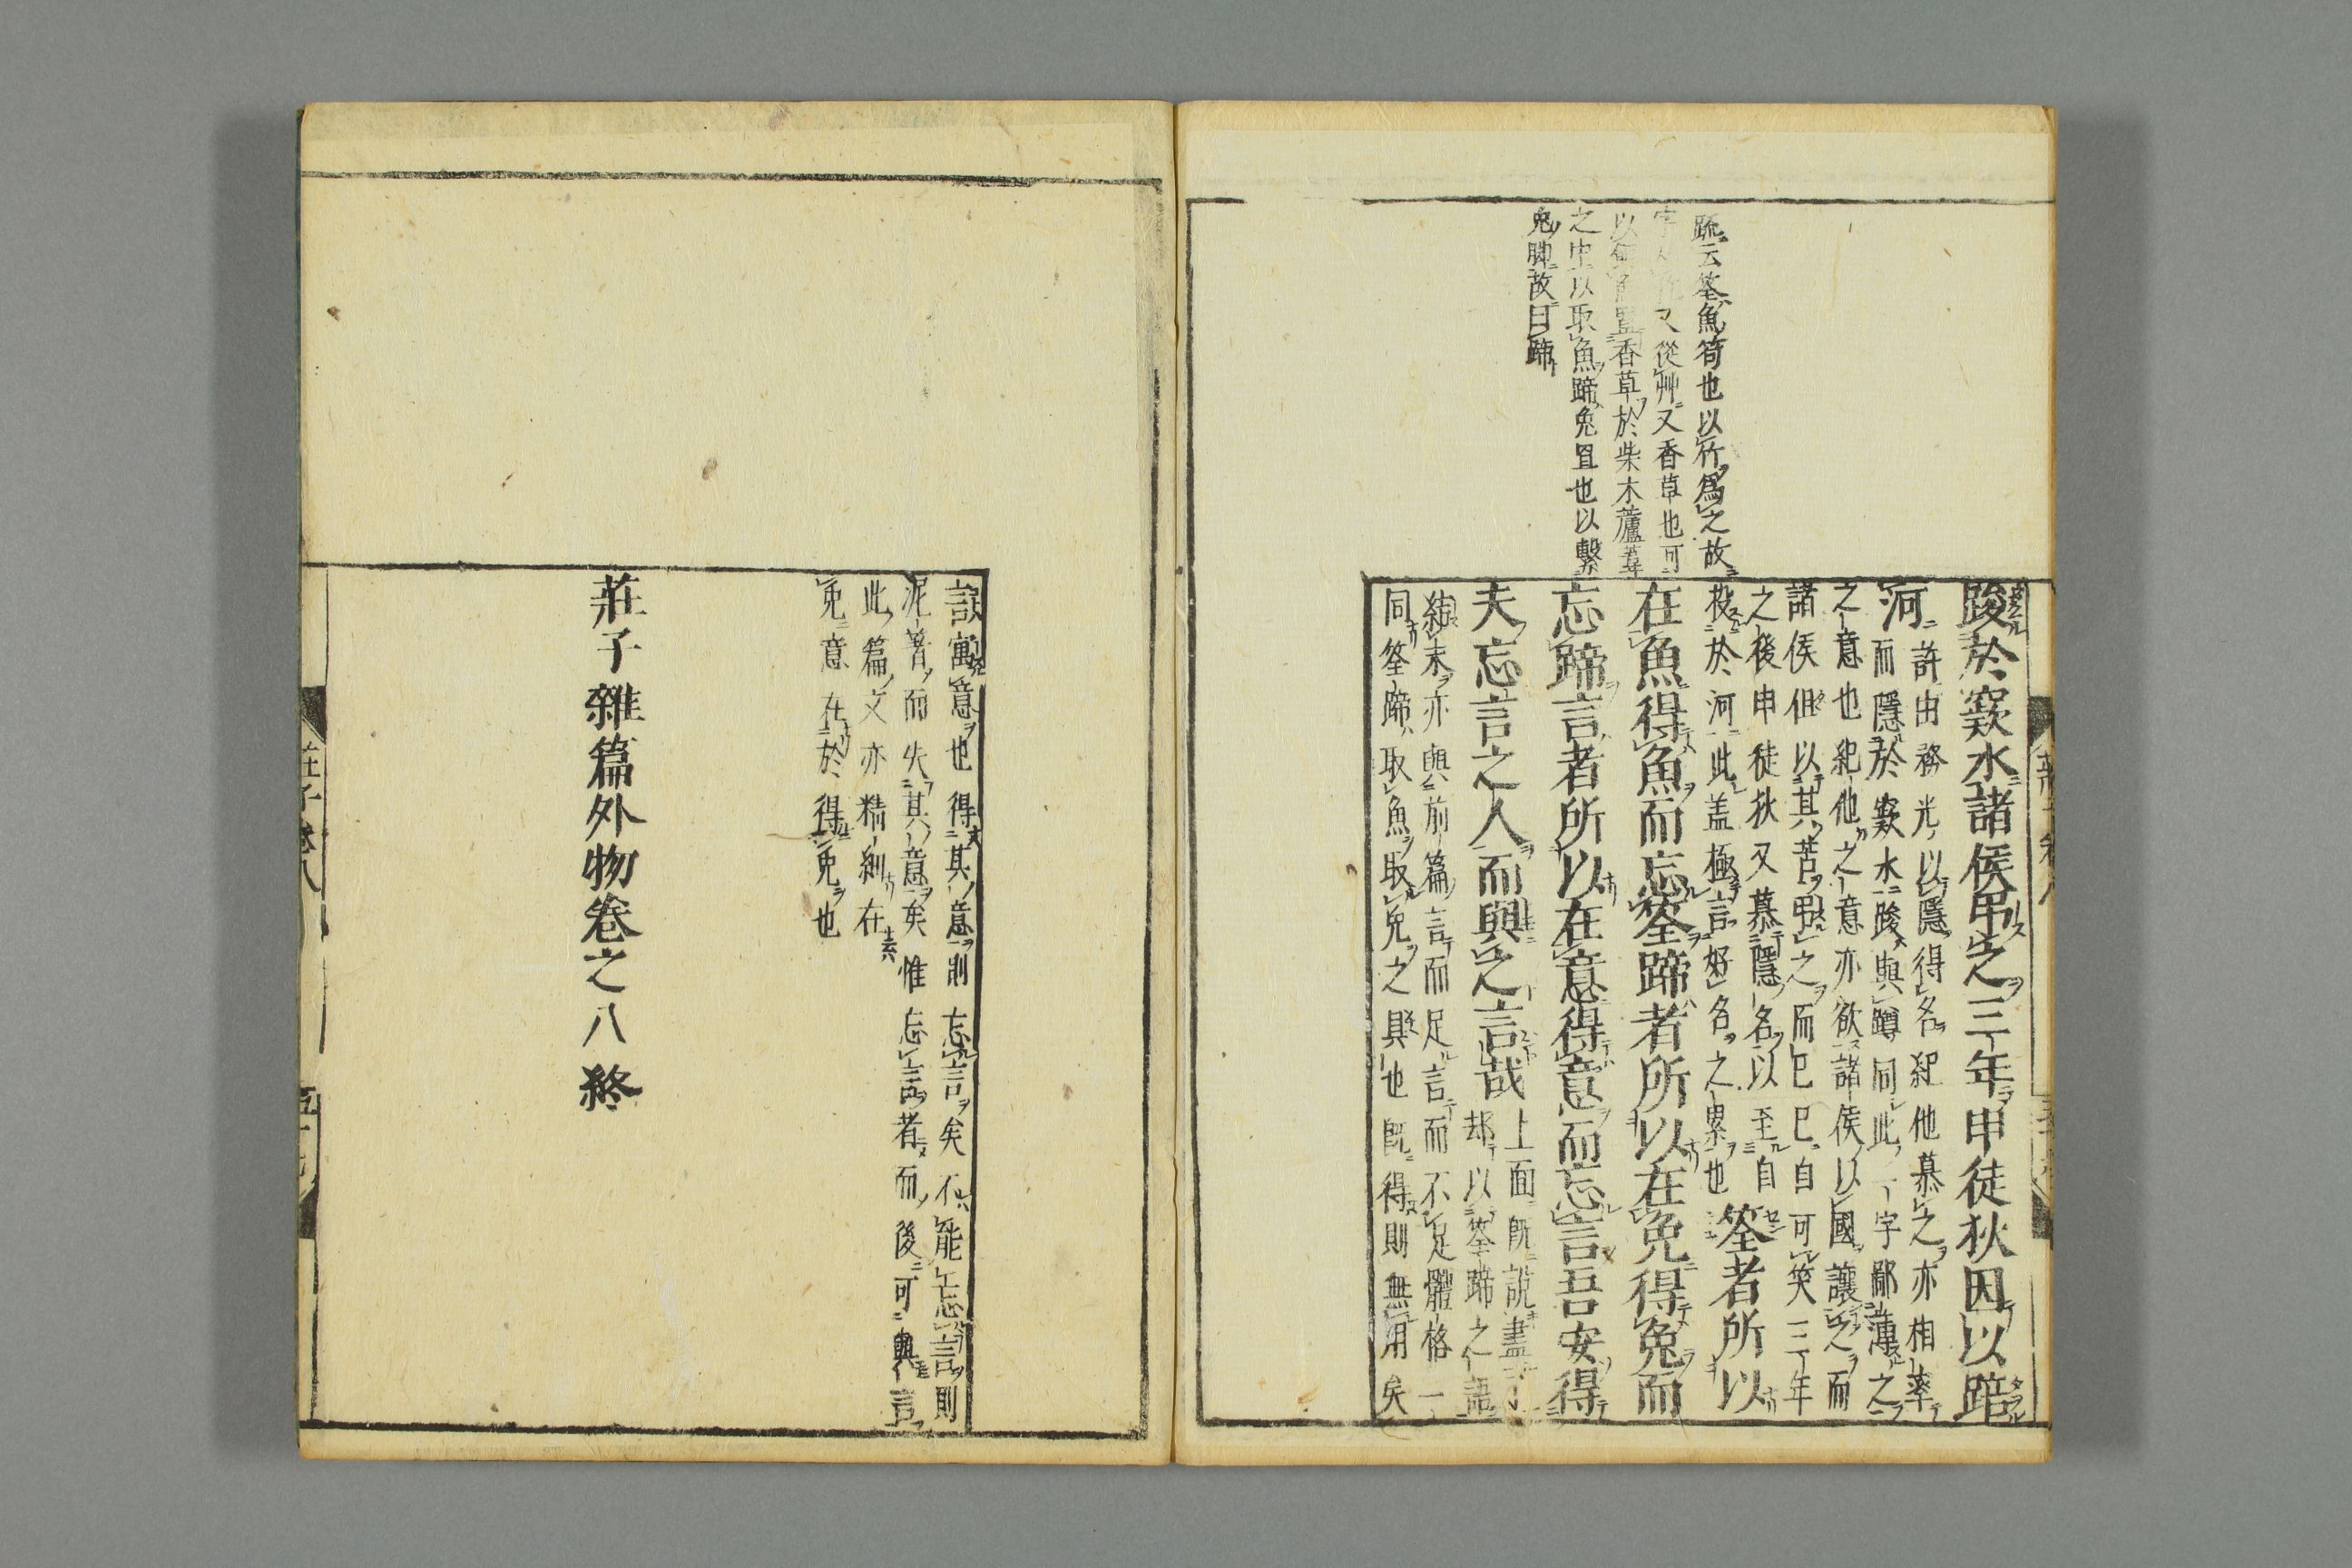 疏云筌魚笱也以竹爲之故
字從竹又從艸又香草也可
以餌魚置香草於柴木蘆葦
之中以取魚蹄兔罝也以繫
兔脚故曰蹄
踆於窾水諸侯弔之三年申徒狄因以踣
河
許由務光以隱得名紀他慕之亦相率
而隱於窾水踆與蹲同此一字鄙薄之
之意也紀他之意亦欲諸侯以國讓之而
諸侯但以其苦弔之而已已自可笑三年
之後申徒狄又慕隱名以至自
投於河此盖極言好名之累也
筌者所以
在魚得魚而忘筌蹄者所以在兔得兔而
忘蹄言者所以在意得意而忘言吾安得
夫忘言之人而與之言哉
上面既說盡了
却以筌蹄之語
結末亦與前篇言而足言而不足體格一
同筌蹄取魚取兔之具也既得則無用矣
言寓意也得其意則忘言矣不能忘言則
泥著而失其意矣惟忘言者而後可與言
此篇文亦精細在
兔意在於得兔也
莊子雜篇外物卷之八終
莊子卷八